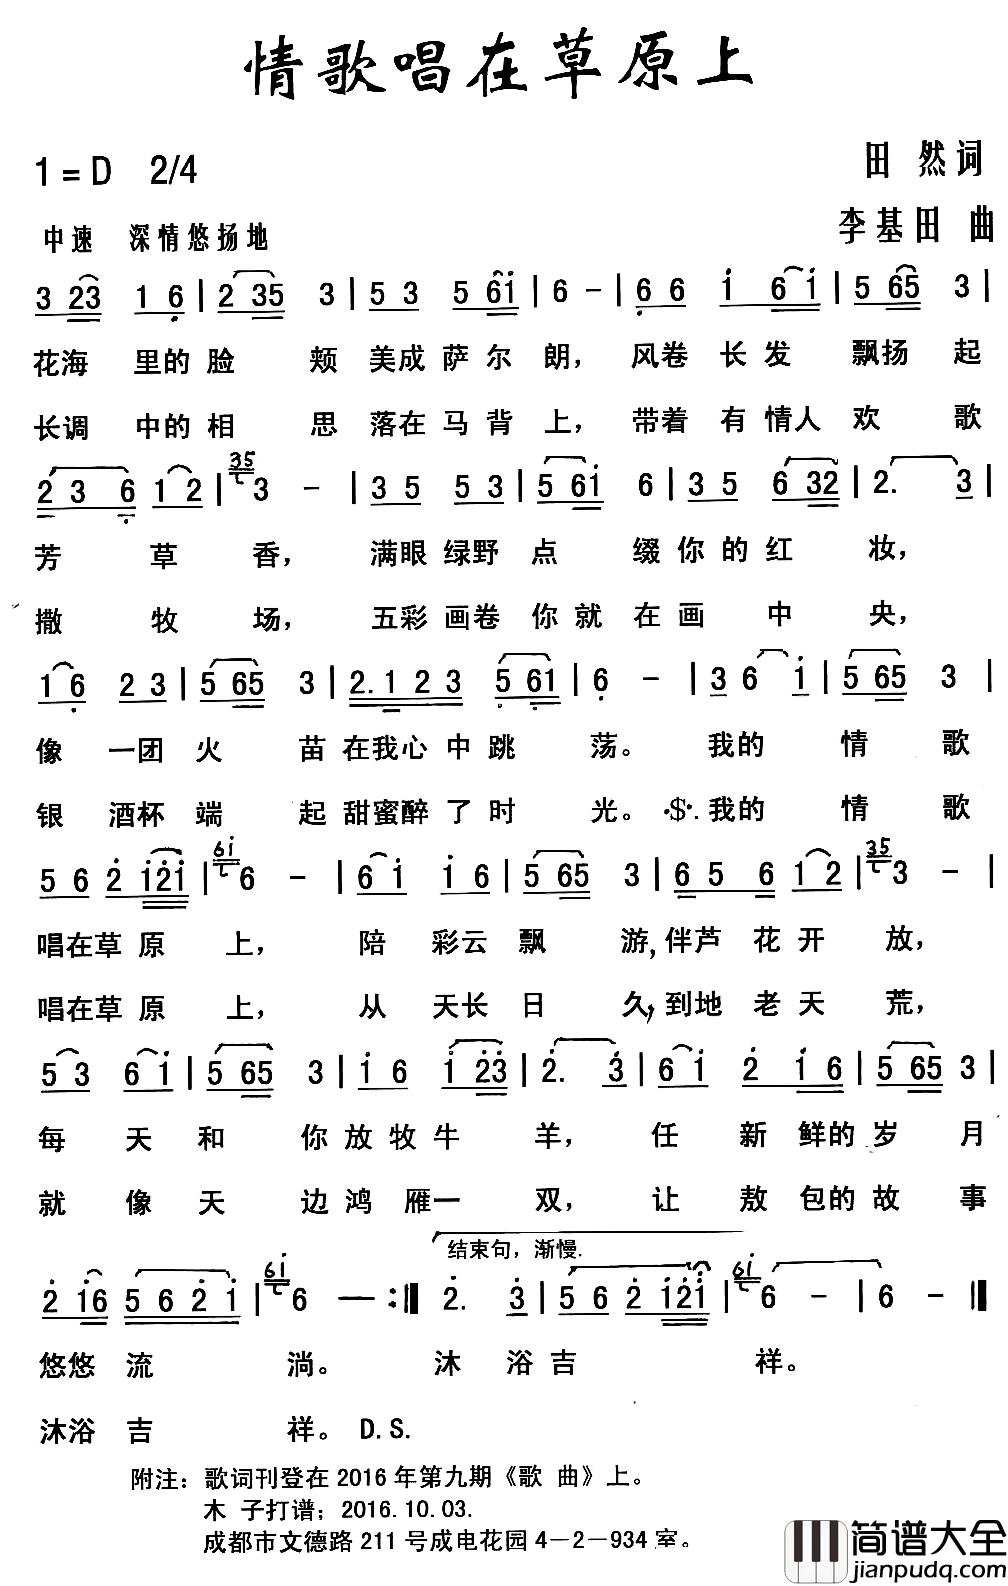 情歌唱在草原上
1=D 2/4
田 然词
中速 深情悠扬地
李基田 曲
3 23 1 6 | 2 35 3 | 5 3 5 6i | 6 – | 6 6 i 6 i | 5 65 3 |
花海 里的 脸 颊 美成 萨尔 朗， 风卷 长发 飘扬 起
长调 中的 相 思 落在 马背 上， 带着 有情人 欢 歌
35
2 3 6 1 2 | 3 – | 3 5 5 3 | 5 6i 6 | 3 5 6 32 | 2. 3 |
芳 草 香， 满眼 绿野 点 缀你 的红 妆，
撒 牧 场， 五彩 画卷 你就 在画 中 央，
1 6 2 3 | 5 65 3 | 2.1 2 3 5 61 | 6 – | 3 6 i | 5 65 3 |
像 一团 火 苗 在我心 中 跳 荡。 我的 情 歌
银 酒杯 端 起 甜蜜醉 了 时 光。 ·$·. 我的 情 歌
6i 35
5 6 2 i2i | 6 – | 6 i i 6 | 5 65 3 | 6 5 6 1 2 | 3 – |
唱在 草 原 上， 陪 彩云 飘 游, 伴芦 花 开 放，
唱在 草 原 上， 从 天长 日 久, 到地 老 天 荒，
5 3 6 i | 5 65 3 | i 6 i 23 | 2. 3 | 6 i 2 i 6 | 5 65 3 |
每 天 和 你 放 牧 牛 羊， 任 新 鲜的 岁 月
就 像 天 边 鸿 雁一 双， 让 敖 包的 故 事
结束句，渐慢.
6i 6i
2 i6 5 6 2 i | 6 — :‖ 2. 3 | 5 6 2 i2i | 6 – | 6 – ‖
悠悠 流 淌。 沐 浴 吉 祥。
沐浴 吉 祥。 D.S.
附注：歌词刊登在 2016 年第九期《歌 曲》上。
木 子打谱；2016.10.03.
成都市文德路 211 号成电花园 4－2－934 室。
简谱大全
jianpudq.com